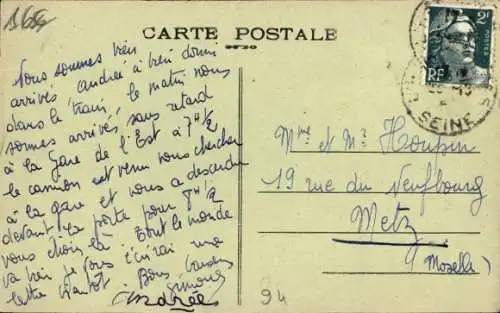 CARTE POSTALE
Nous sommes bien
arrivés andrée à bien dormi
dans le train, le matin nous
sommes arrivés sans retard
à la gare de l'Est à 7h½
le camion est venu nous chercher
à la gare et nous a descendu
devant la porte pour 8h½
vous chois là tout le monde
va bien je vous écirai une
lettre bientot Bons baisers
Simone
andrée
2F
POSTES
RF
SEINE
Mme et Mr Houpin
19 rue du Neufbourg
Metz
(Moselle)
94